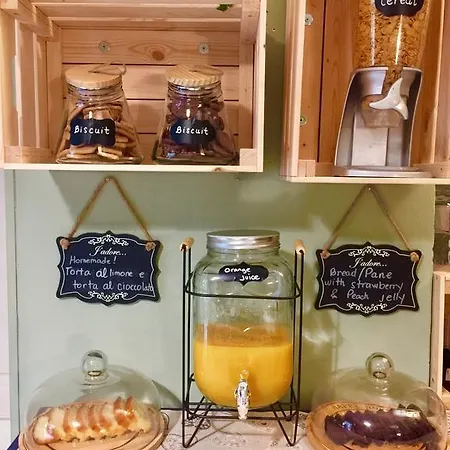 Cereal
Biscuit
Biscuit
J'adore...
Homemade!
Torta al limone e
torta al cioccolato
Orange
juice
J'adore...
Bread/Pane
with strawberry
& Peach jelly